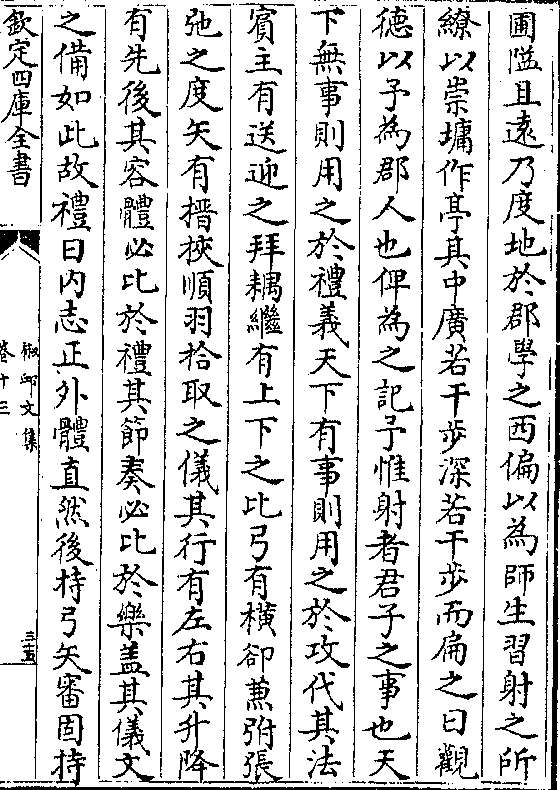 圃隘且遠乃度地於郡學之西偏以為師生習射之所
繚以崇墉作亭其中廣若干步深若干步而扁之曰觀
徳以予為郡人也俾為之記予惟射者君子之事也天
下無事則用之於禮義天下有事則用之於攻伐其法
賓主有送迎之拜耦繼有上下之比弓有橫卻蒹弣張
弛之度矢有搢挾順羽拾取之儀其行有左右其升降
有先後其容體必比於禮其節奏必比於樂盖其儀文
之備如此故禮曰内志正外體直然後持弓矢審固持
欽定四庫全書
椒邱文集
卷十三
三五